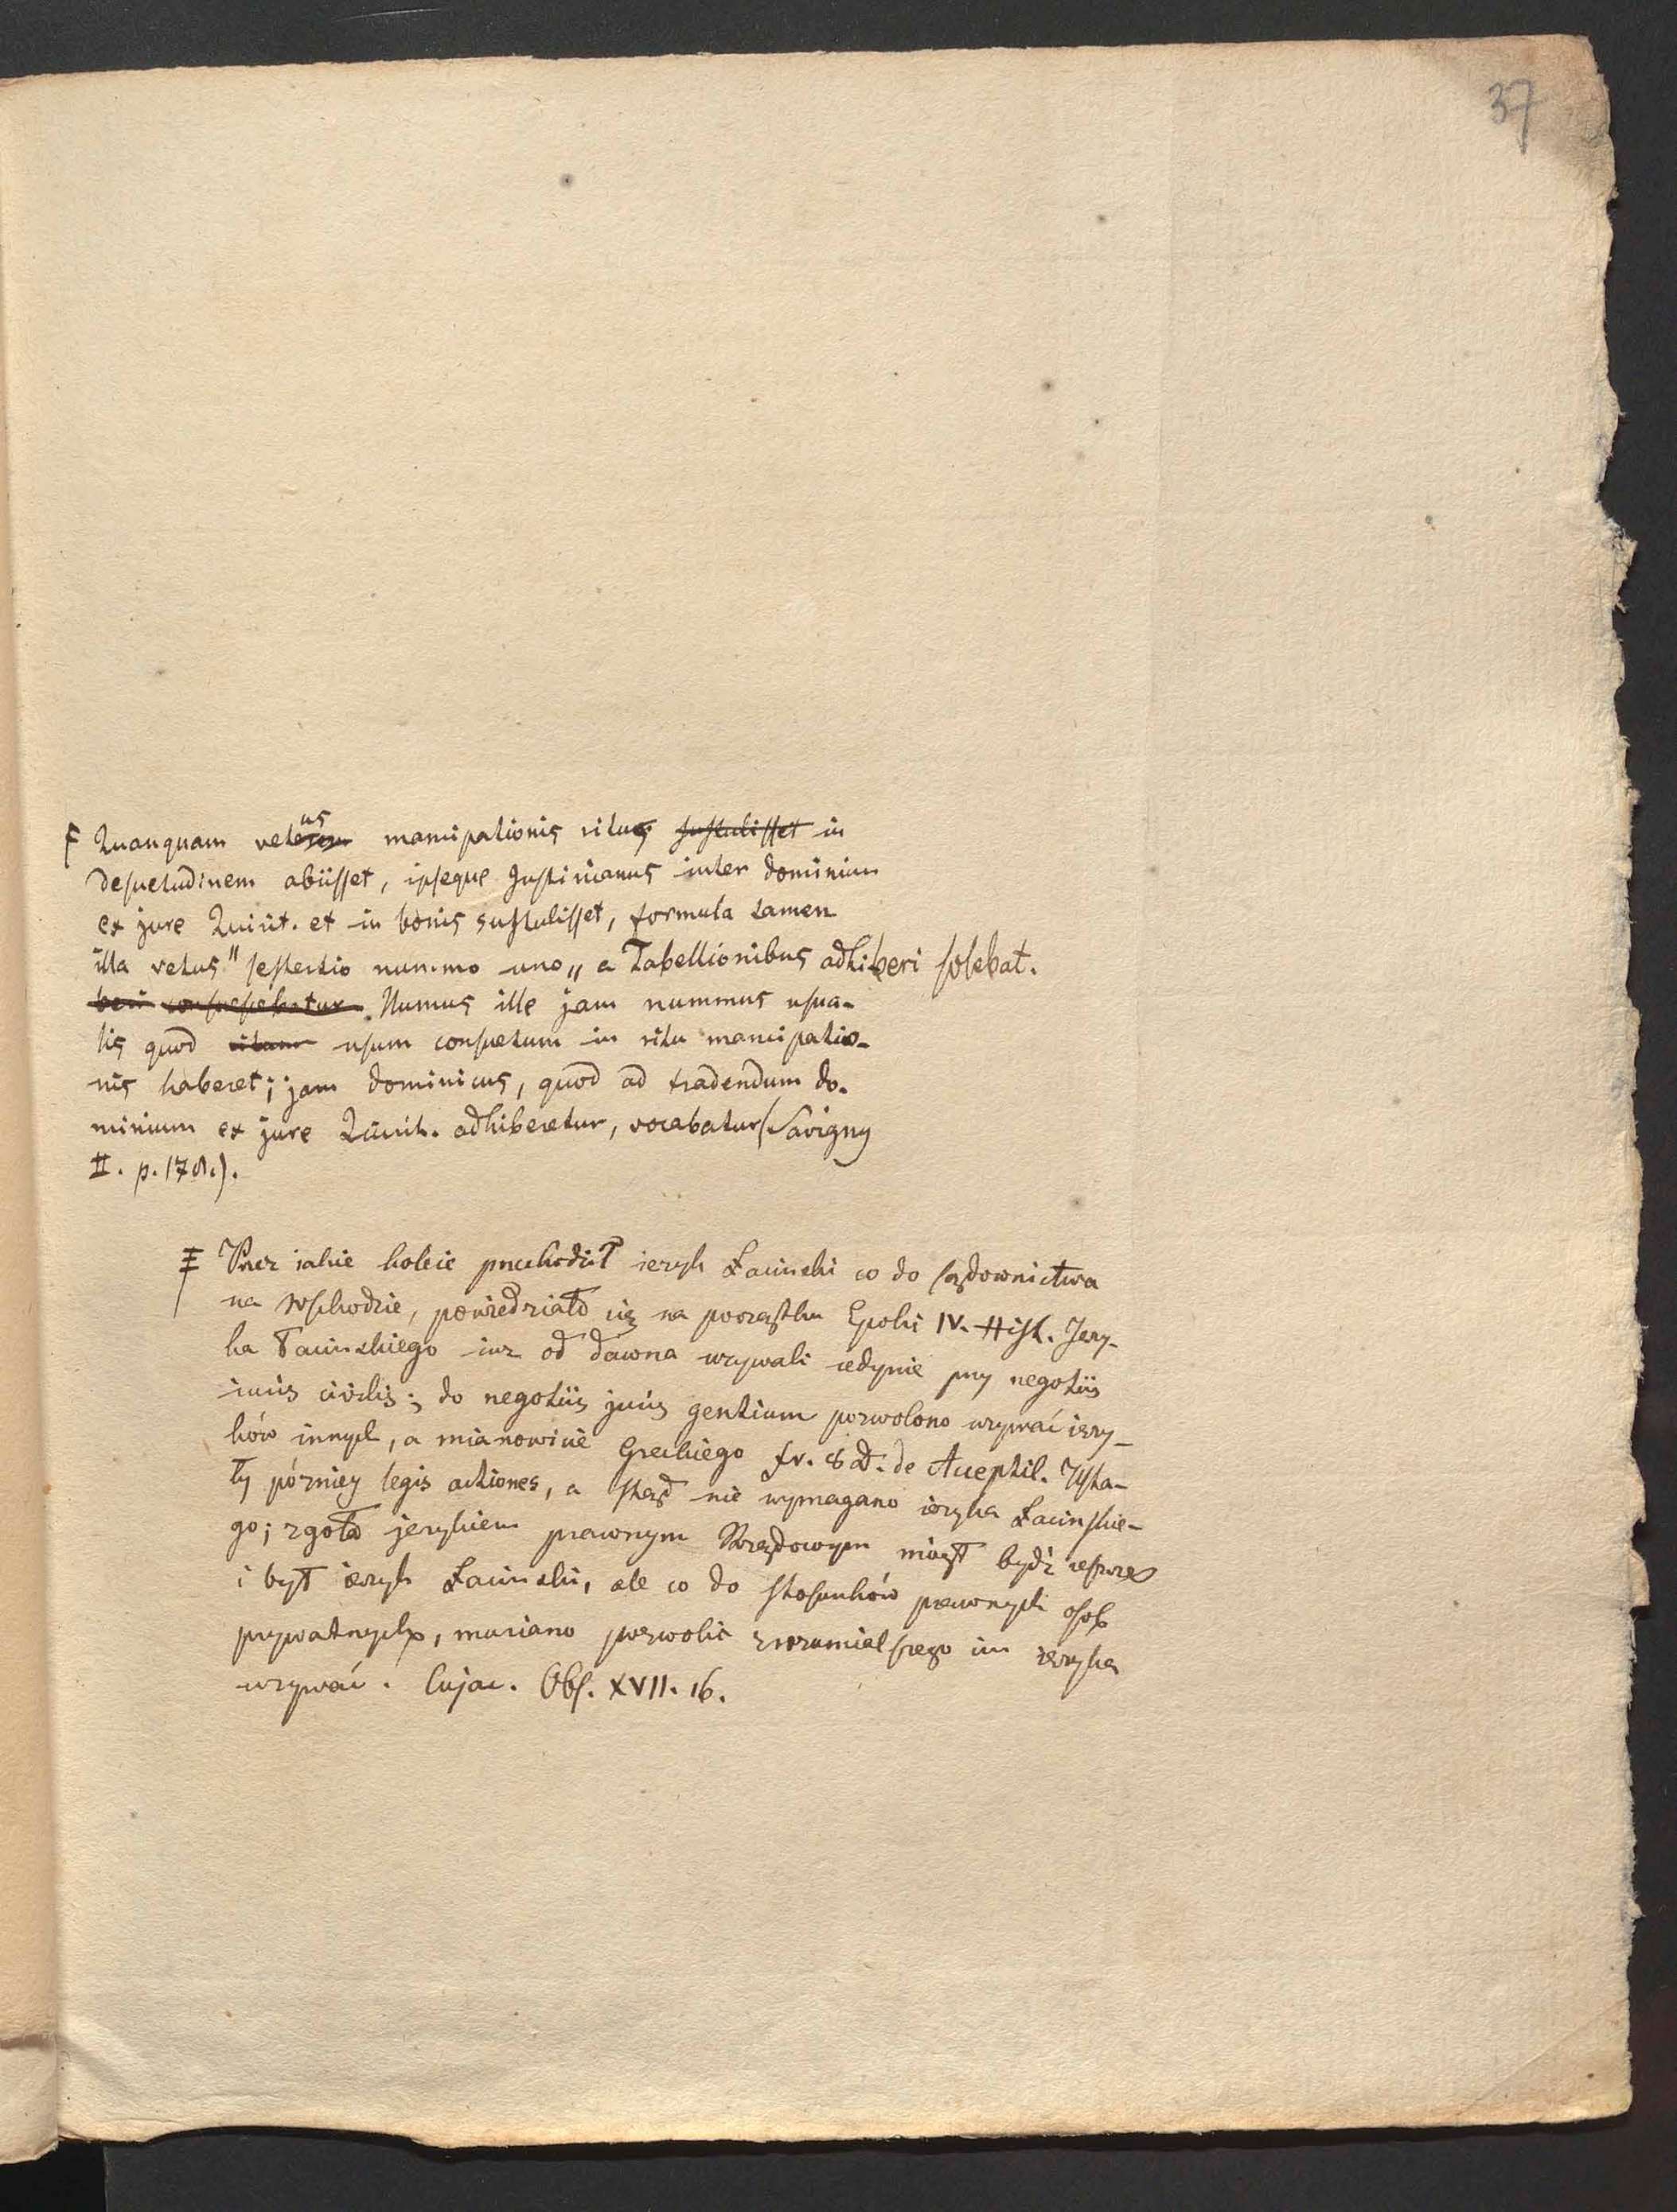 37
Quanquam vetus mancipationis ritus sustulisset in
desuetudinem abiisset, ipseque Justinianus inter dominium
ex jure Quirit. et in bonis sustulisset, formula tamen
illa vetus "sestertio nummo uno„ a Tabellionibus adhiberi solebat.
beri consuescebatur. Numus ille jam nummus usua-
lis quod ritum usum consuetum in ritu mancipatio-
nis haberet; jam dominicus, quod ad tradendum do-
minium ex jure Quirit. adhiberetur, vocabatur (Savigny
II. p. 178.).
Przez iakie koleie przechodził ięzyk Łacinski co do sądownictwa
na Wschodzie, powiedziało się na początku Epoki IV. Hist. Języ-
ka Łacinskiego iuz od dawna używali iedynie przy negotiis
iuris civilis; do negotiis juris gentium pozwolono używać ięzy-
ków innych, a mianowicie Greckiego fr. 8 D. de Acceptil. Usta-
ły później legis actiones, a stąd nie wymagano ięzyka Łacinskie-
go; zgoła językiem prawnym Urzędowym miał bydź ieszcze
i był ięzyk Łacinski, ale co do stosunków prawnych osob
prywatnych, musiano pozwolić zrozumialszego im ięzyka
używać. Cujac. Obs. XVII. 16.